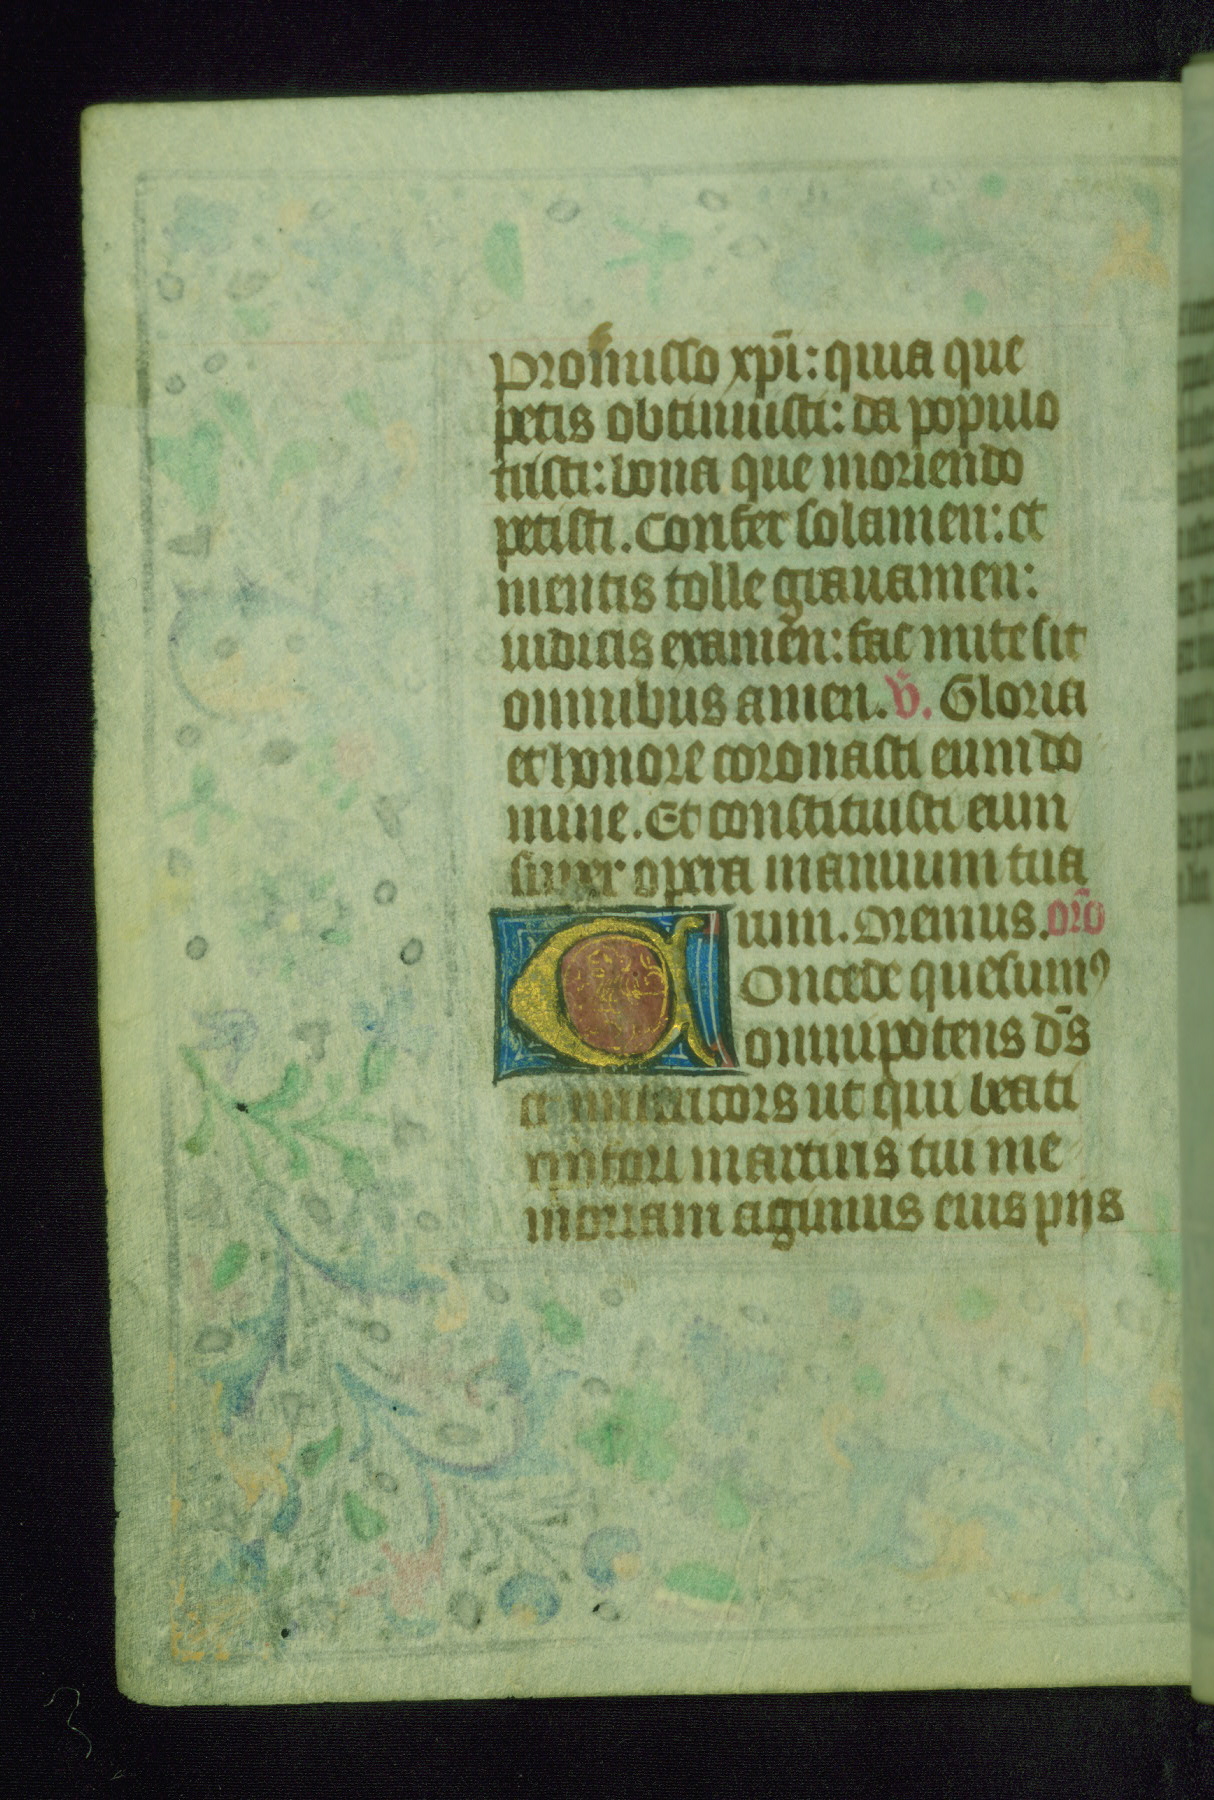 Promisso xpi: quia que
petis obtinuisti: da populo
tristi: bona que moriendo
petisti. Confer solamen: et
mentis tolle grauamen:
iudicis examen: fac mite sit
omnibus amen. V. Gloria
et honore coronasti eum do
mine. Et constituisti eum
super opera manuum tua
rum. Oremus. oro
Concede quesumus
omnipotens ds
et misericors ut qui beati
martiris tui me
moriam agimus eius piis